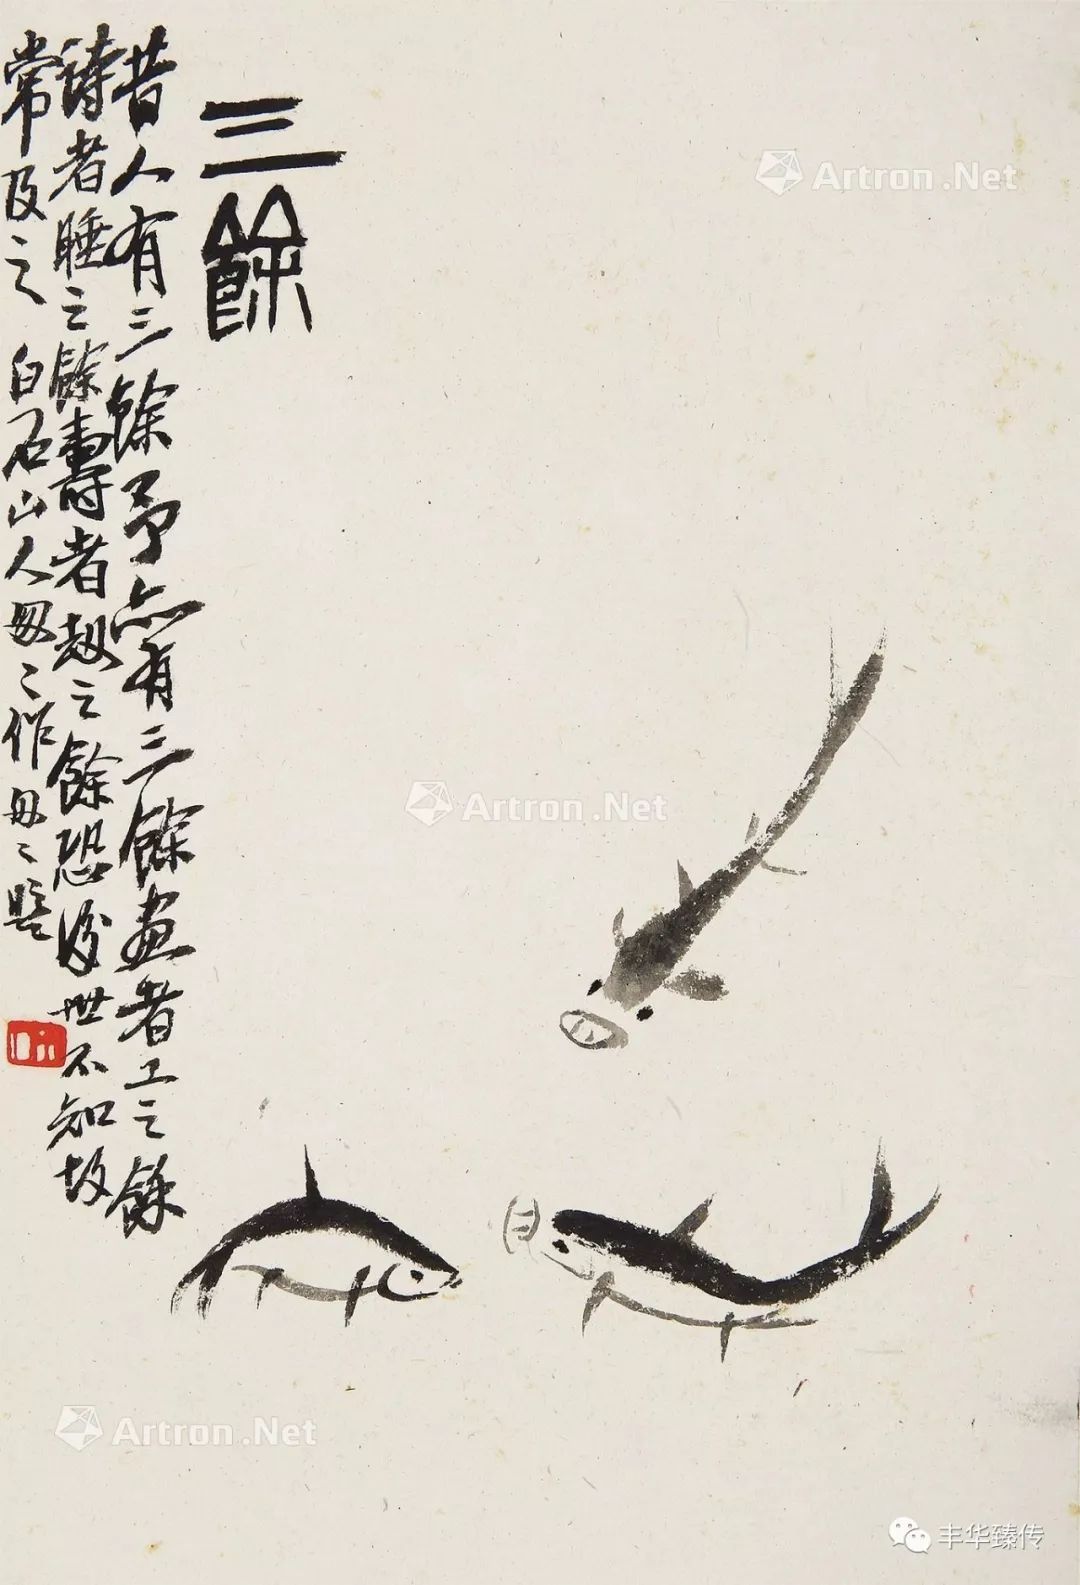 三餘
昔人有三餘予亦有三餘畫者工之餘
詩者睡之餘壽者劫之餘恐後世不知故
常及之 白石山人又又作又又題
Artron.Net
Artron.Net
Artron.Net
丰华臻传